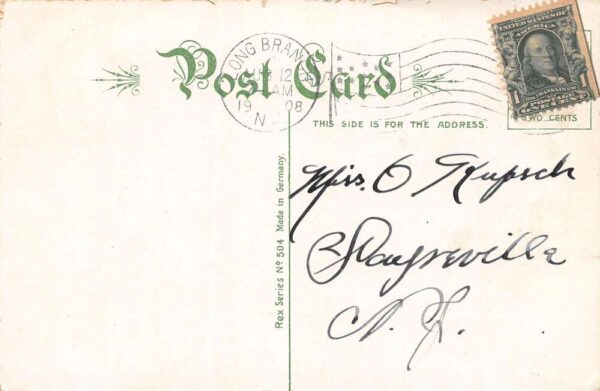 Post Card
LONG BRANCH
12
AM
1908
N.J.
UNITED STATES OF AMERICA
1
FRANKLIN
ONE CENT
TWO CENTS
THIS SIDE IS FOR THE ADDRESS.
Rex Series No 504 Made in Germany.
Miss. O Kupsch
Sayreville
N. J.